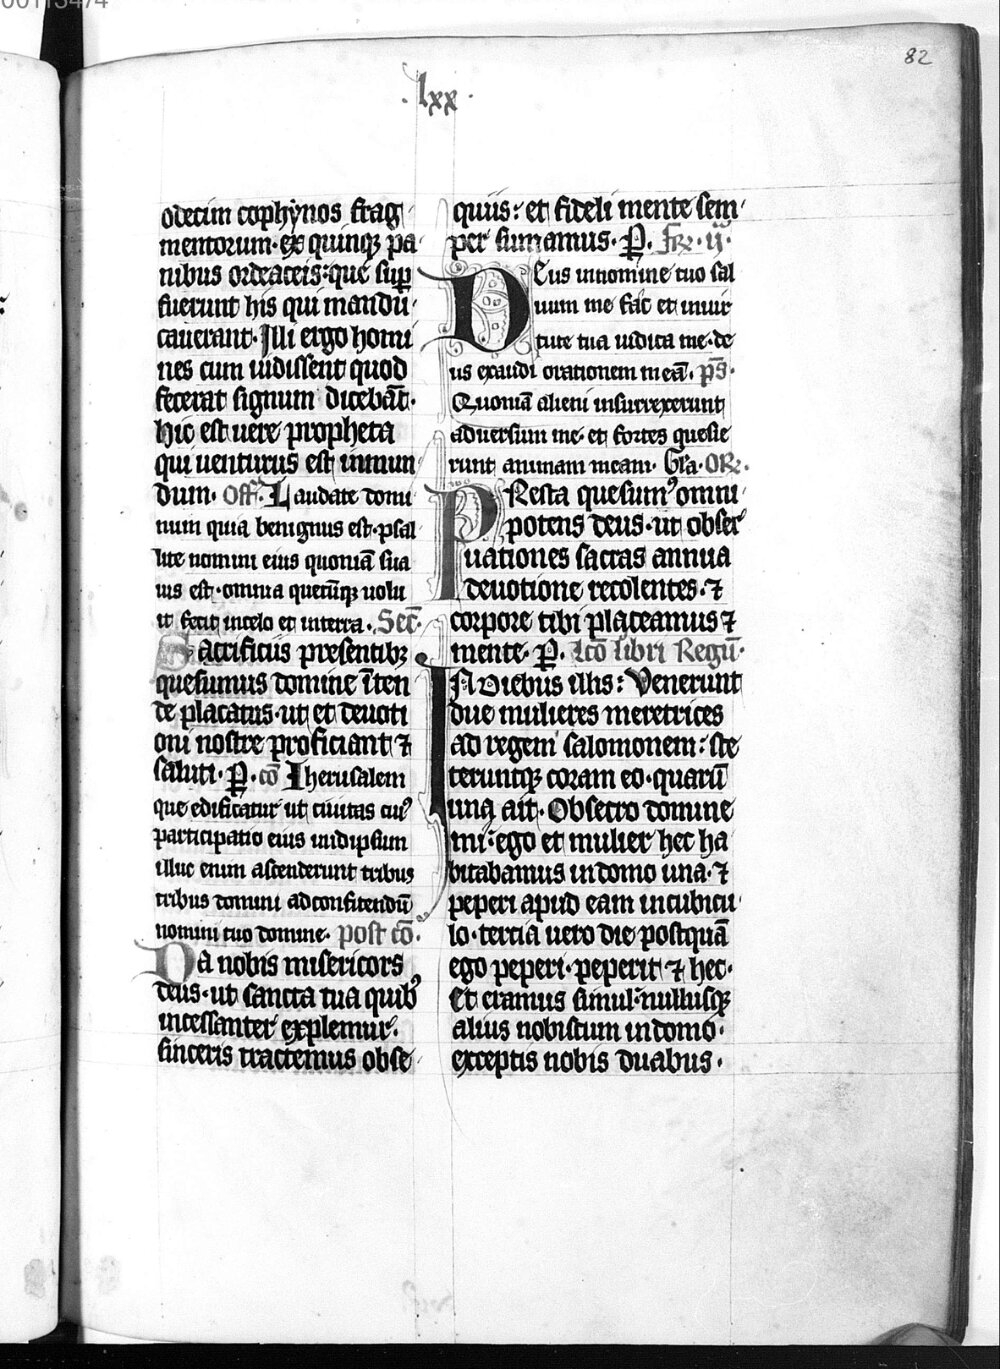 82
.lxx.
odecim cophynos frag
mentorum. ex quinqꝫ pa
nibus ordeaceis: que suꝑ
fuerunt his qui mandu
cauerant. Illi ergo homi
nes cum uidissent quod
fecerat signum dicebāt.
hic est uere propheta
qui uenturus est in mun
dum. Off. Laudate domi
num quia benignus est. psal
lite nomini eius quoniā sua
uis est. omnia quecūqꝫ uolu
it fecit in celo et in terra. Sec̄.
Sacrificiis presentibꝫ
quesumus domine īten
de placatus. ut et deuoti
oni nostre proficiant ⁊
saluti. P. cō Iherusalem
que edificatur ut ciuitas cuiꝰ
participatio eius in idipsum
illuc enim ascenderunt tribus
tribus domini ad confitendū
nomini tuo domine. post cō.
Da nobis misericors
deus. ut sancta tua quibꝰ
incessanter explemur.
sinceris tractemus obse
quiis: et fideli mente sem
per sumamus. P. Fr̄. ij.
Deus in nomine tuo sal
uum me fac et in uir
tute tua iudica me. de
us exaudi orationem meā. p̄s.
Quoniā alieni insurrexerunt
aduersum me. et fortes quesie
runt animam meam. Gl̄a. OR̄.
Presta quesumꝰ omni
potens deus. ut obser
uationes sacras annua
deuotione recolentes. ⁊
corpore tibi placeamus ⁊
mente. P. lc̄o libri Regū.
IN Diebus illis: Venerunt
due mulieres meretrices
ad regem salomonem: ste
teruntqꝫ coram eo. quarū
una ait. Obsecro domine
mi: ego et mulier hec ha
bitabamus in domo una. ⁊
peperi apud eam in cubicu
lo. tercia uero die postquā
ego peperi. peperit ⁊ hec.
Et eramus simul. nullusqꝫ
alius nobiscum in domo.
exceptis nobis duabus.